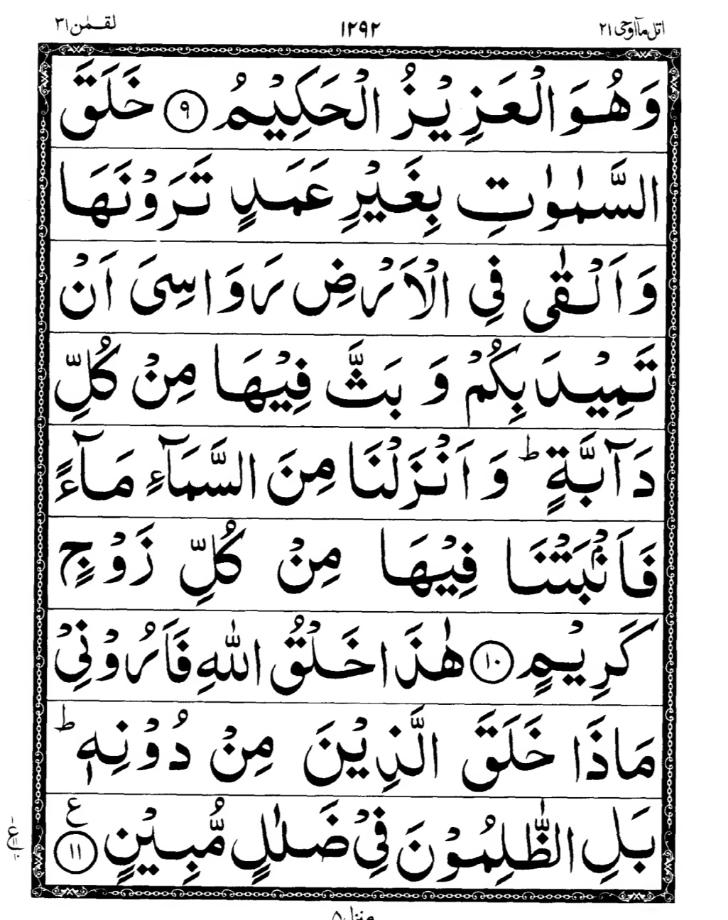 اتل مآاوحی ۲۱ ۱۲۹۲ لقمٰن ۳۱
وَهُوَ الْعَزِیْزُ الْحَكِیْمُ ۹ خَلَقَ
السَّمٰوٰتِ بِغَیْرِ عَمَدٍ تَرَوْنَهَا
وَاَلْقٰی فِی الْاَرْضِ رَوَاسِیَ اَنْ
تَمِیْدَ بِكُمْ وَ بَثَّ فِیْهَا مِنْ كُلِّ
دَآبَّةٍ ؕ وَ اَنْزَلْنَا مِنَ السَّمَآءِ مَآءً
فَاَنْۢبَتْنَا فِیْهَا مِنْ كُلِّ زَوْجٍ
كَرِیْمٍ ۱۰ هٰذَا خَلْقُ اللّٰهِ فَاَرُوْنِیْ
مَاذَا خَلَقَ الَّذِیْنَ مِنْ دُوْنِهٖ ؕ
بَلِ الظّٰلِمُوْنَ فِیْ ضَلٰلٍ مُّبِیْنٍ ۱۱ ع
منزل ۵